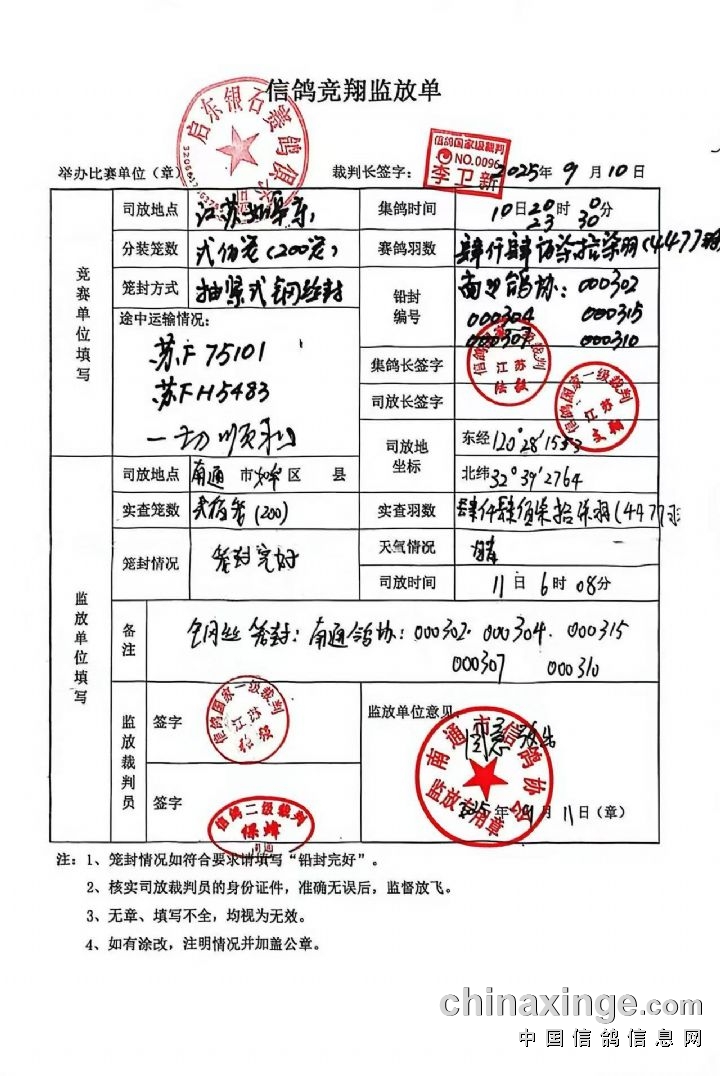 信鸽竞翔监放单
启东银石赛鸽俱乐部
举办比赛单位（章）
裁判长签字：
信鸽国家级裁判
NO.0096
李卫新
2025年 9月10日
竞赛单位填写
司放地点 江苏如皋东
集鸽时间 10日20时0分
23 30
分装笼数 弍佰笼(200笼)
赛鸽羽数 肆仟肆佰柒拾柒羽(4477羽
笼封方式 抽紧式钢丝封
铅封编号 南通鸽协：000302
000304 000315
000307 000310
途中运输情况：
苏F 75101
苏F H5483
一切顺利
集鸽长签字
信鸽国家一级裁判
江苏
司放长签字
信鸽国家一级裁判
江苏
司放地坐标
东经 120°28′1553
北纬 32°39′2764
监放单位填写
司放地点 南通 市 区 县
实查笼数 贰佰笼(200)
实查羽数 肆仟肆佰柒拾柒羽(4477羽
笼封情况 笼封完好
天气情况 晴
司放时间 11日6时08分
备注
钢丝笼封：南通鸽协：000302. 000304. 000315
000307 000310
监放裁判员
签字
信鸽国家一级裁判
江苏
签字
信鸽二级裁判
保峰
南通
监放单位意见
同意
南通市信鸽协会
监放专用章
2025年9月11日（章）
注：1、笼封情况如符合要求请填写“铅封完好”。
2、核实司放裁判员的身份证件，准确无误后，监督放飞。
3、无章、填写不全，均视为无效。
4、如有涂改，注明情况并加盖公章。
chinaxinge.com
中国信鸽信息网